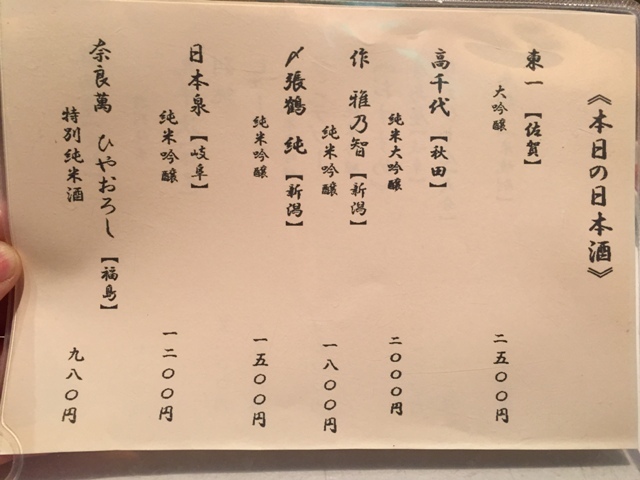 《本日の日本酒》
東一【佐賀】
大吟醸
二五〇〇円
高千代【秋田】
純米大吟醸
二〇〇〇円
作 雅乃智【新潟】
純米吟醸
一八〇〇円
〆張鶴 純【新潟】
純米吟醸
一五〇〇円
日本泉【岐阜】
純米吟醸
一二〇〇円
奈良萬 ひやおろし【福島】
特別純米酒
九八〇円